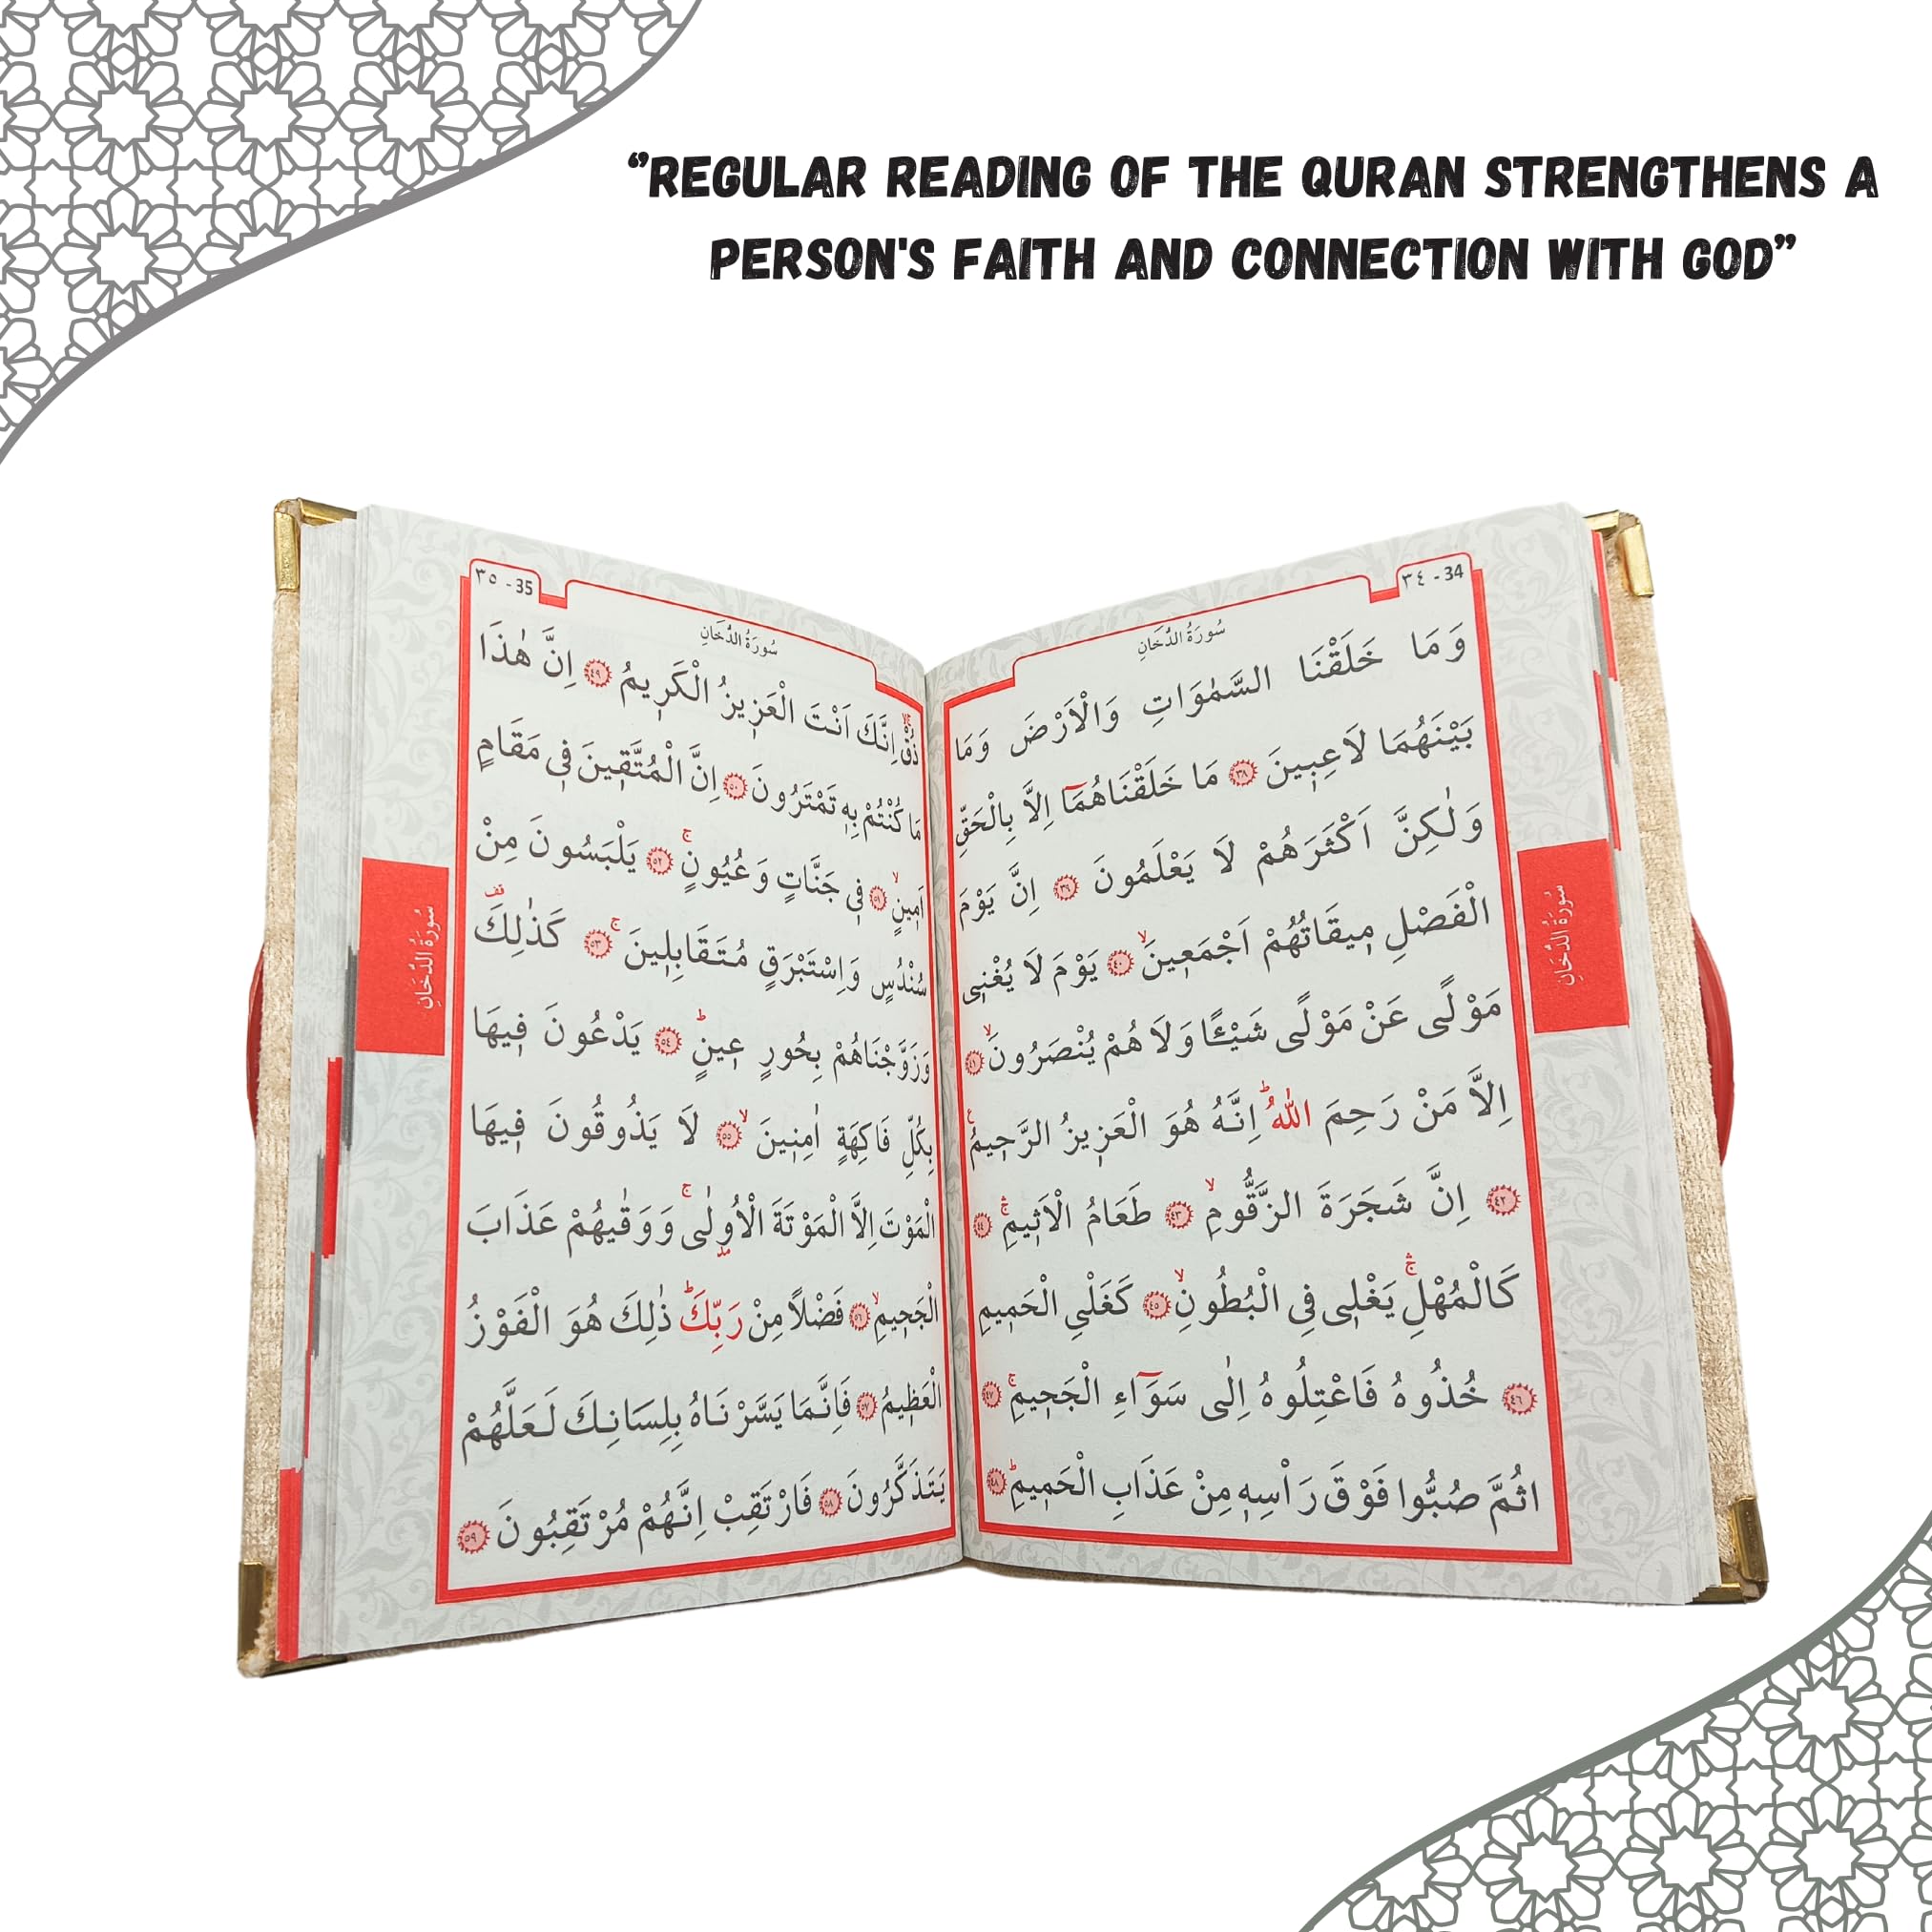 ‘’REGULAR READING OF THE QURAN STRENGTHENS A
PERSON'S FAITH AND CONNECTION WITH GOD’’
٣٤ - 34
سُورَةُ الدُّخَانِ
وَمَا خَلَقْنَا السَّمٰوَاتِ وَالْاَرْضَ وَمَا
بَيْنَهُمَا لَاعِبٖينَ ٣٨ مَا خَلَقْنَاهُمَٓا اِلَّا بِالْحَقِّ
وَلٰكِنَّ اَكْثَرَهُمْ لَا يَعْلَمُونَ ٣٩ اِنَّ يَوْمَ
الْفَصْلِ مٖيقَاتُهُمْ اَجْمَعٖينَۙ ٤٠ يَوْمَ لَا يُغْنٖى
مَوْلًى عَنْ مَوْلًى شَيْـًٔا وَلَا هُمْ يُنْصَرُونَۙ ٤١
اِلَّا مَنْ رَحِمَ اللّٰهُؕ اِنَّهُ هُوَ الْعَزٖيزُ الرَّحٖيمُ
٤٢ اِنَّ شَجَرَةَ الزَّقُّومِۙ ٤٣ طَعَامُ الْاَثٖيمِۚ ٤٤
كَالْمُهْلِۚ يَغْلٖى فِى الْبُطُونِۙ ٤٥ كَغَلْىِ الْحَمٖيمِ
٤٦ خُذُوهُ فَاعْتِلُوهُ اِلٰى سَوَٓاءِ الْجَحٖيمِۚ ٤٧
اثُمَّ صُبُّوا فَوْقَ رَاْسِهٖ مِنْ عَذَابِ الْحَمٖيمِؕ ٤٨
سُورَةُ الدُّخَانِ
٣٥ - 35
سُورَةُ الدُّخَانِ
ذُقْۚ اِنَّكَ اَنْتَ الْعَزٖيزُ الْكَرٖيمُ ٤٩ اِنَّ هٰذَا
مَا كُنْتُمْ بِهٖ تَمْتَرُونَ ٥٠ اِنَّ الْمُتَّقٖينَ فٖى مَقَامٍ
اَمٖينٍۙ ٥١ فٖى جَنَّاتٍ وَعُيُونٍۚ ٥٢ يَلْبَسُونَ مِنْ
سُنْدُسٍ وَاِسْتَبْرَقٍ مُتَقَابِلٖينَۚ ٥٣ كَذٰلِكَ قف
وَزَوَّجْنَاهُمْ بِحُورٍ عٖينٍؕ ٥٤ يَدْعُونَ فٖيهَا
بِكُلِّ فَاكِهَةٍ اٰمِنٖينَۙ ٥٥ لَا يَذُوقُونَ فٖيهَا
الْمَوْتَ اِلَّا الْمَوْتَةَ الْاُولٰىۚ وَوَقٰيهُمْ عَذَابَ
الْجَحٖيمِۙ ٥٦ فَضْلًا مِنْ رَبِّكَؕ ذٰلِكَ هُوَ الْفَوْزُ
الْعَظٖيمُ ٥٧ فَاِنَّمَا يَسَّرْنَاهُ بِلِسَانِكَ لَعَلَّهُمْ
يَتَذَكَّرُونَ ٥٨ فَارْتَقِبْ اِنَّهُمْ مُرْتَقِبُونَ ٥٩
سُورَةُ الدُّخَانِ